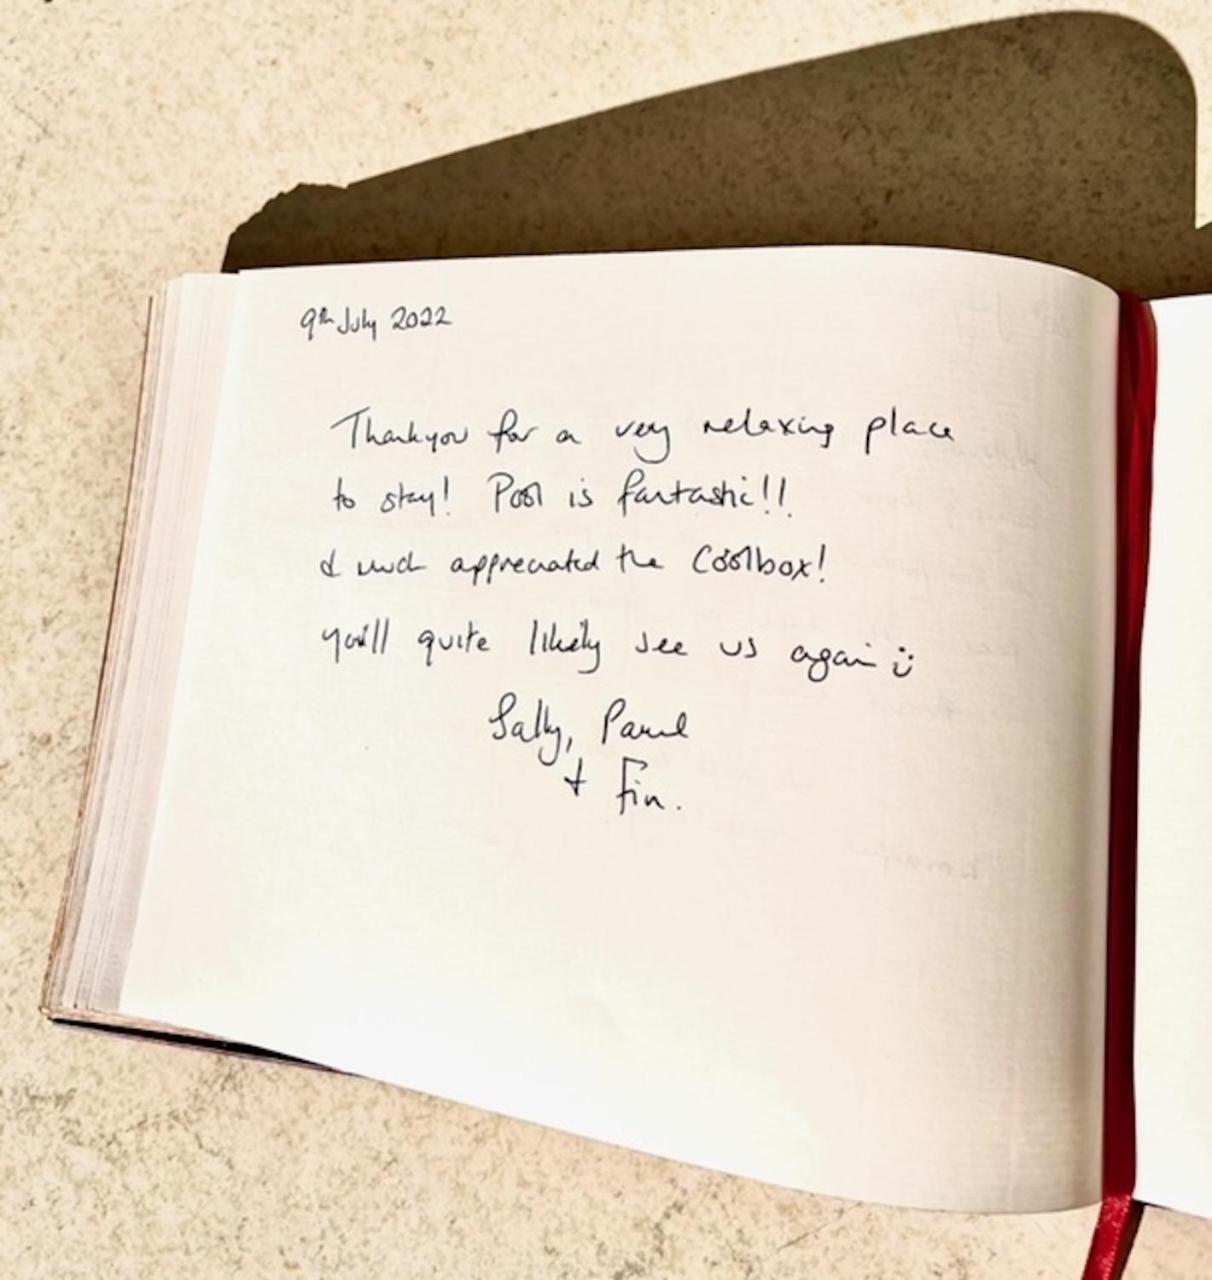 9th July 2022
Thankyou for a very relaxing place
to stay! Pool is fantastic!!
& much appreciated the Coolbox!
You'll quite likely see us again ü
Sally, Paul
& Fin.